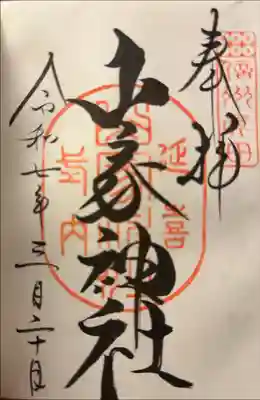 奉拝
延喜
山家神社
式内
令和七年三月二十日